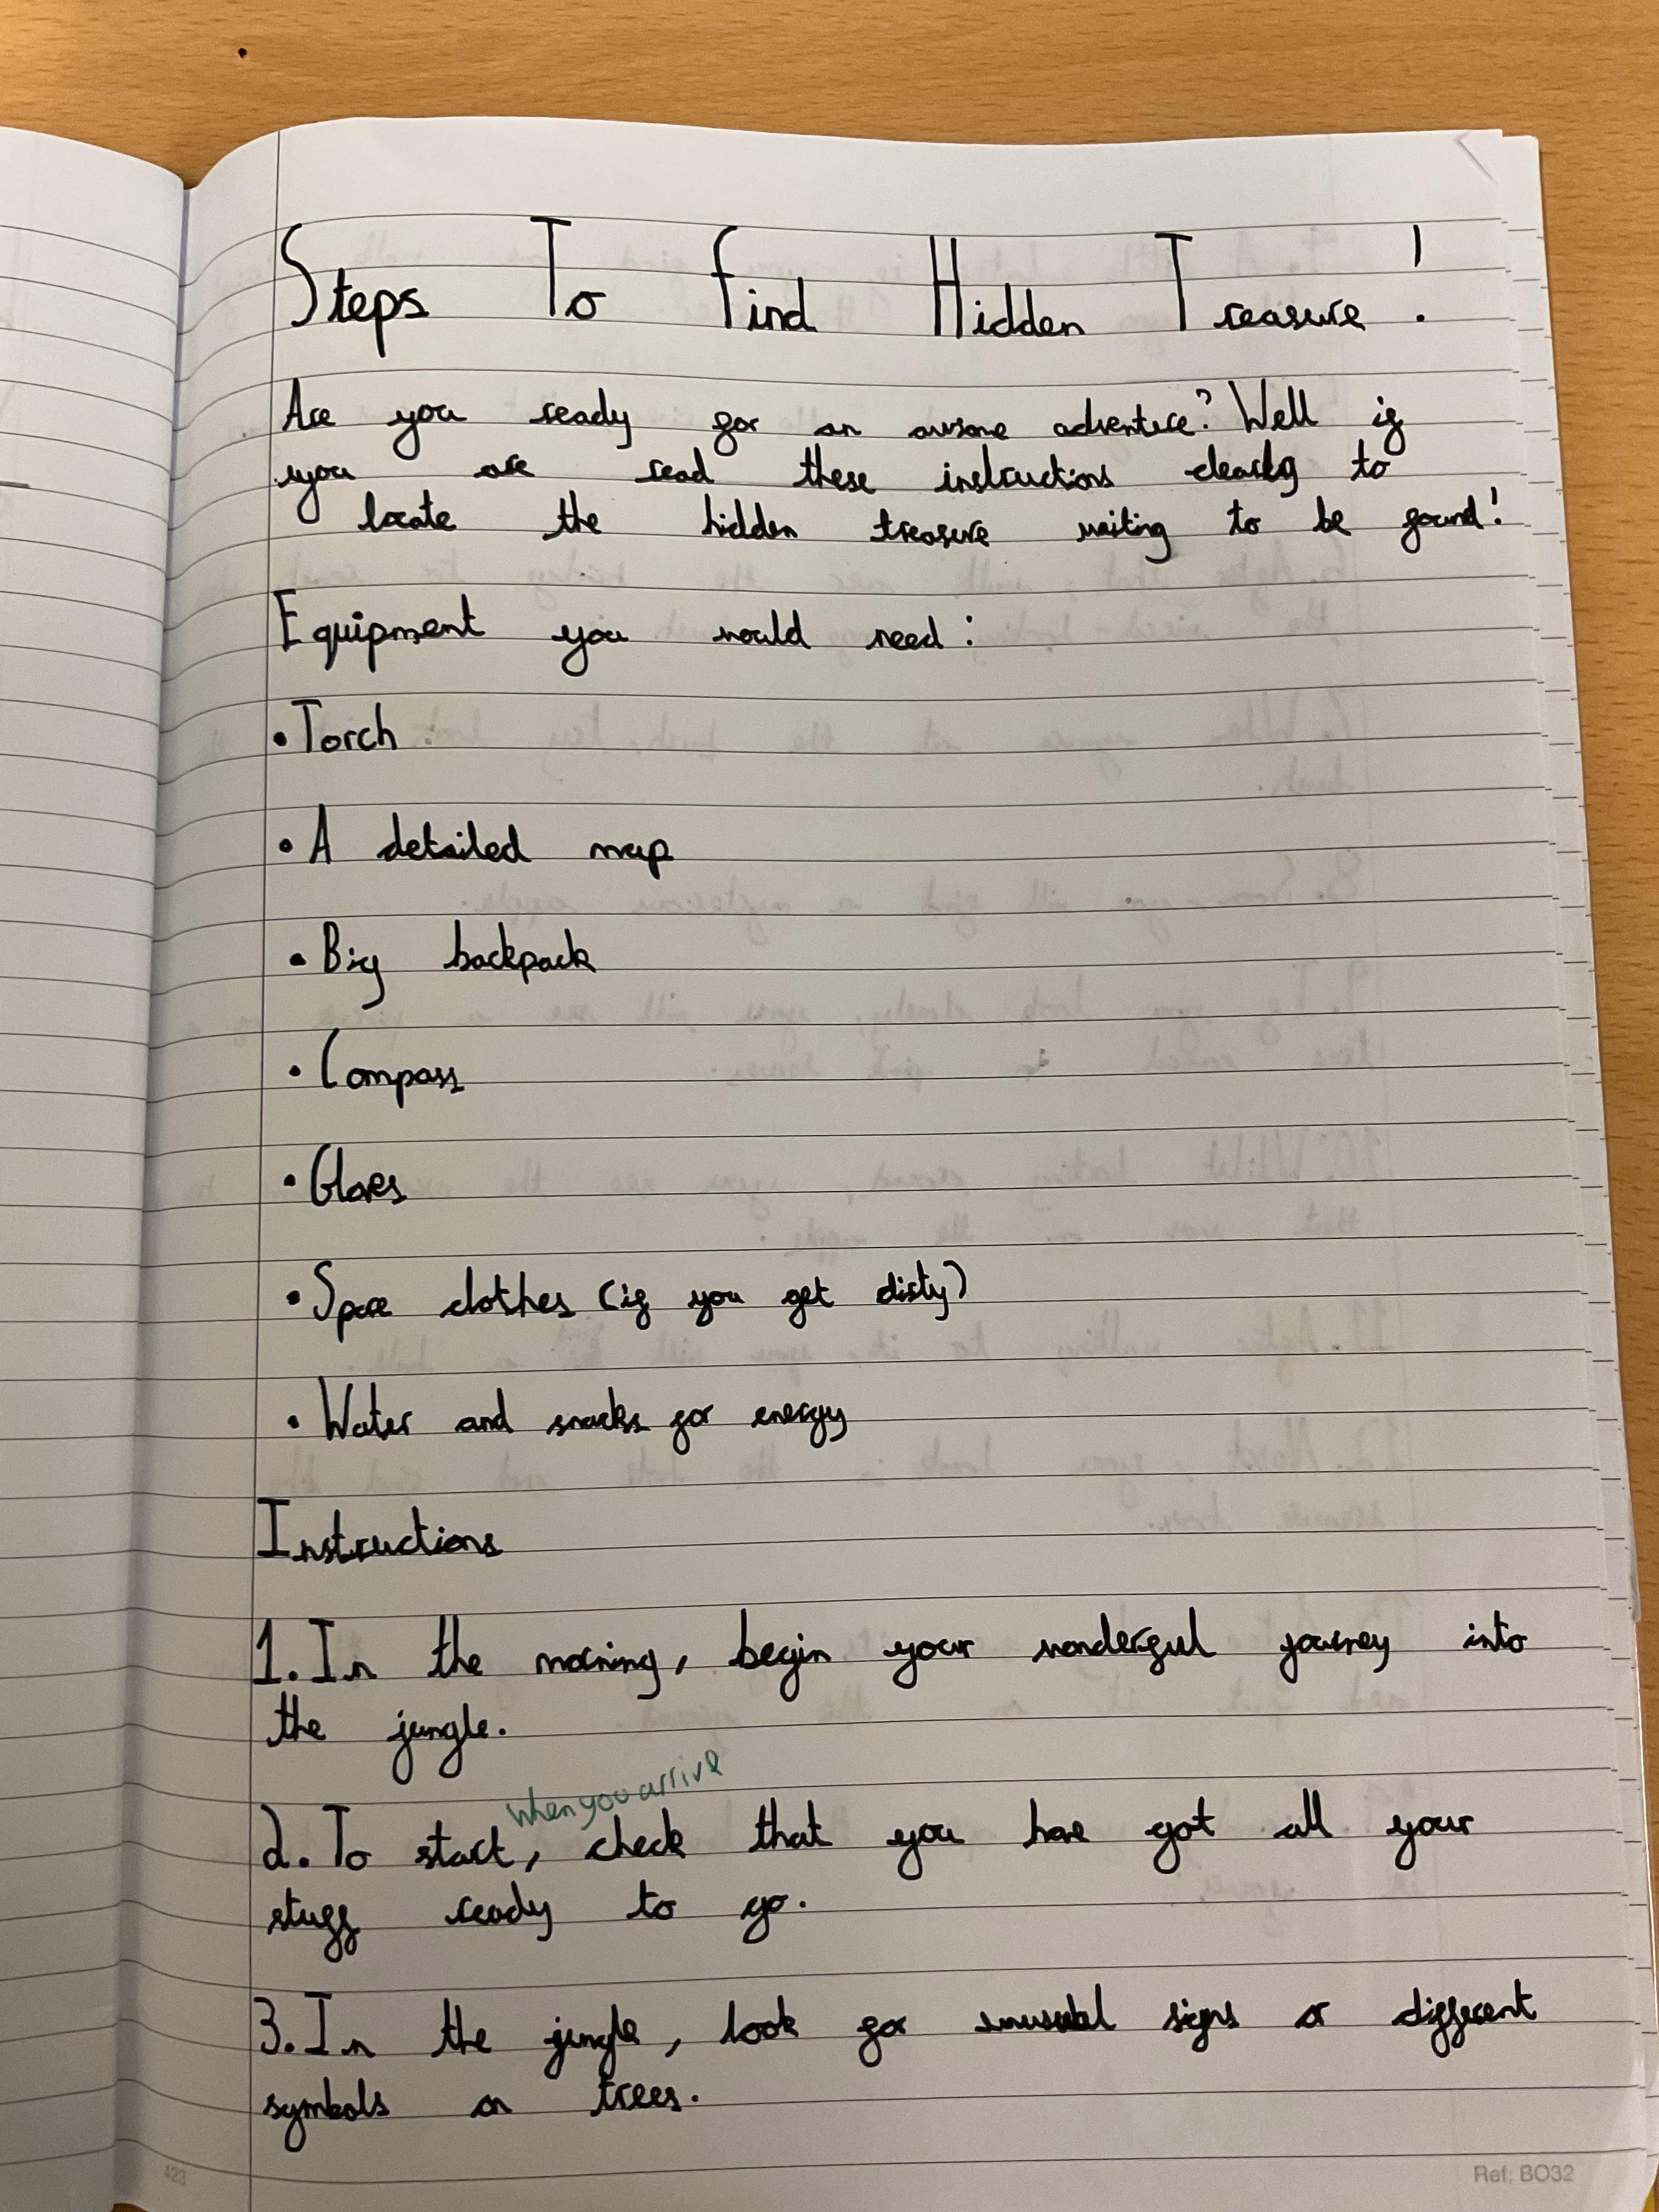 Steps To Find Hidden Treasure!
Are you ready for an awsome adventure? Well if
you are read these instructions clearly to
locate the hidden treasure waiting to be found!
Equipment you would need:
• Torch
• A detailed map
• Big backpack
• Compass
• Gloves
• Spare clothes (if you get dirty)
• Water and snacks for energy
Instructions
1. In the morning, begin your wonderful journey into
the jungle.
when you arrive
2. To start, check that you have got all your
stuff ready to go.
3. In the jungle, look for unusual signs or different
symbols on trees.
423
Ref: BO32